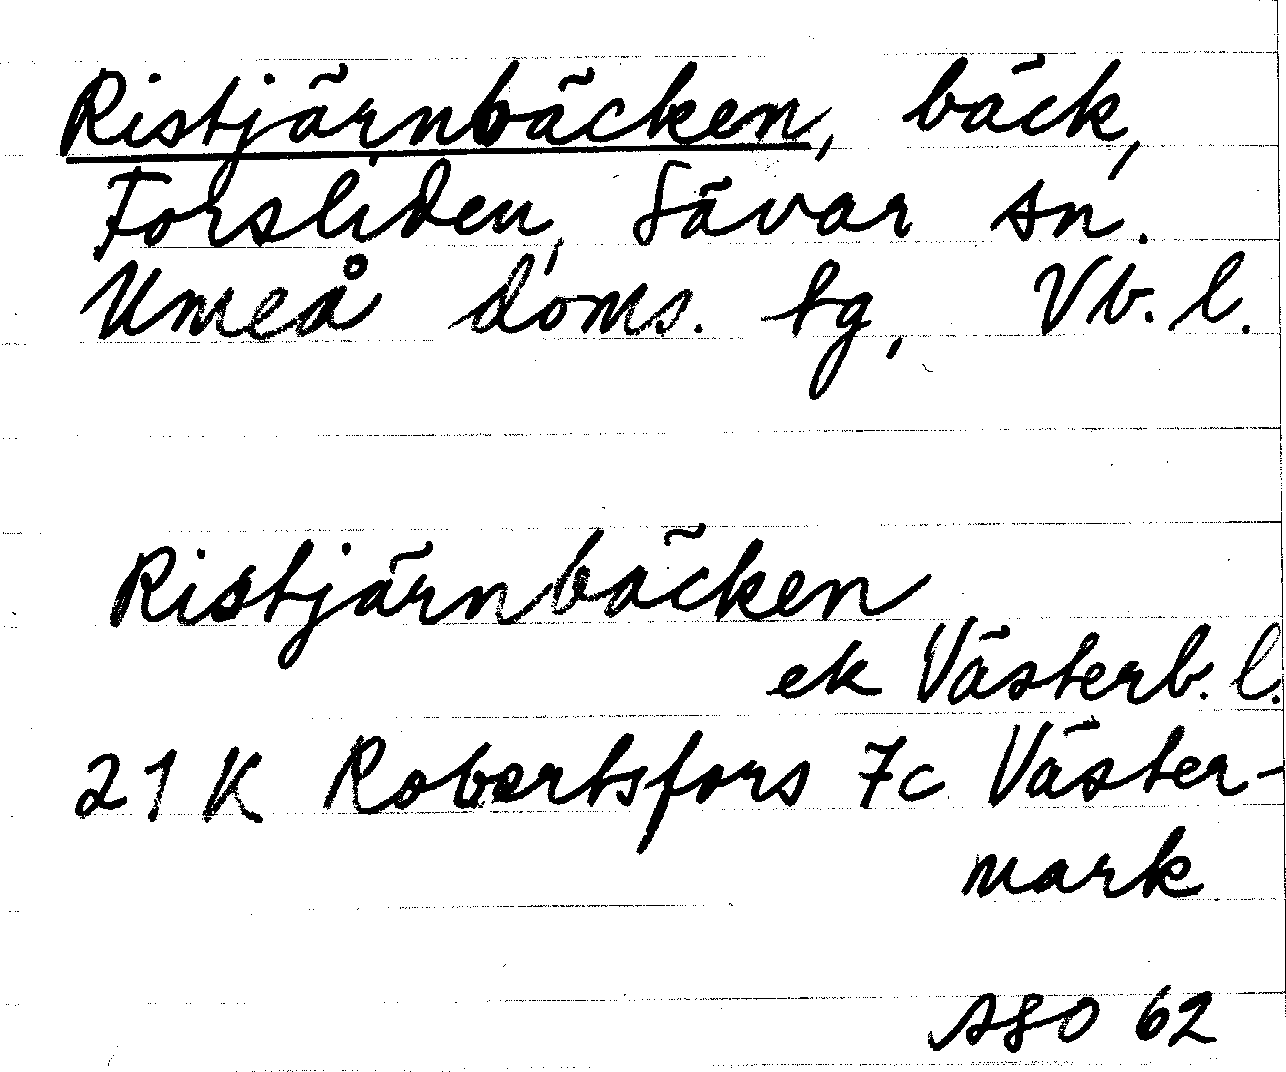 Ristjärnbäcken, bäck,
Forsliden, Sävar sn.
Umeå doms. tg, Vb. l.
Ristjärnbäcken
ek Västerb. l.
21 K Robertsfors 7c Väster-
mark
ASO 62